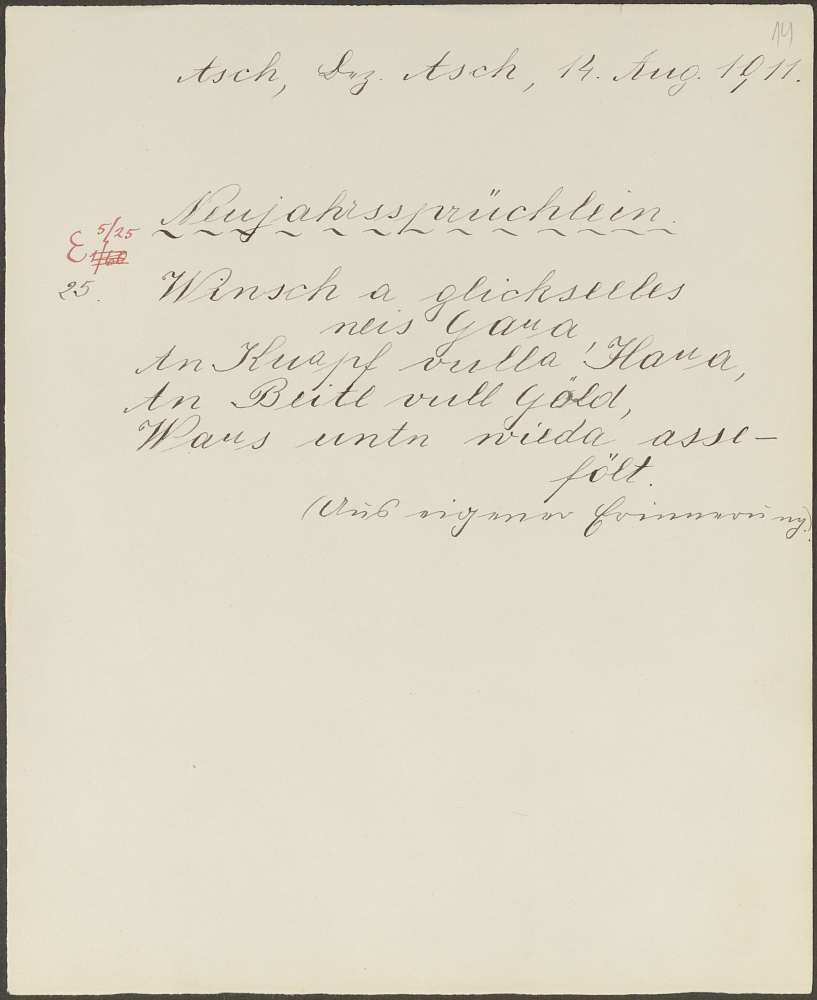 14
Asch, Bez. Asch, 14. Aug. 1911.
Neujahrssprüchlein.
E 5/25
25.
Winsch a glickseeles
neis Gaua
An Knapf vulla Haua,
An Beitl vull Göld,
Waus untn wieda asse-
fölt.
(Aus eigener Erinnerung).